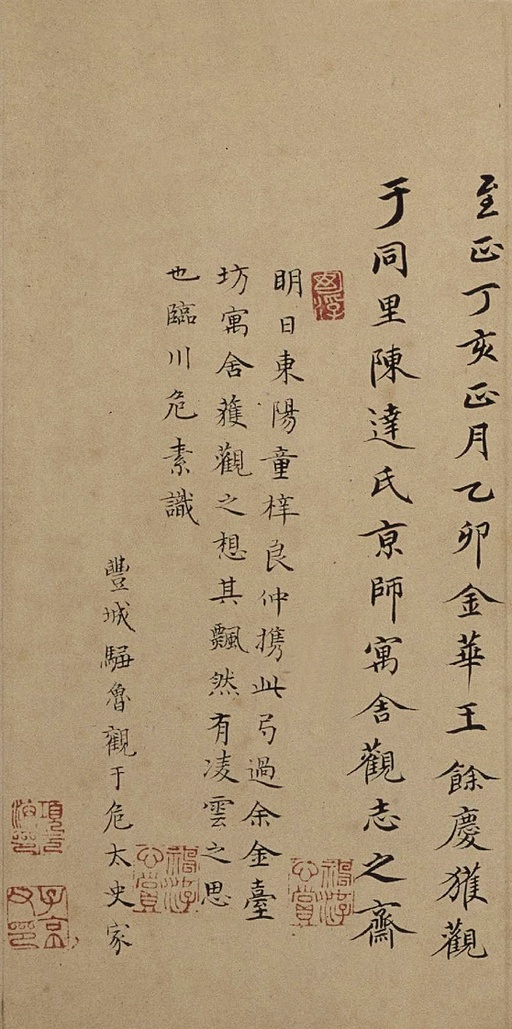 至正丁亥正月乙卯金華王餘慶獲觀
于同里陳達氏京師寓舍觀志之齋
明日東陽童梓良仲携此弓過余金臺
坊寓舍獲觀之想其飄然有凌雲之思
也臨川危素識
豐城騚魯觀于危太史家
子京